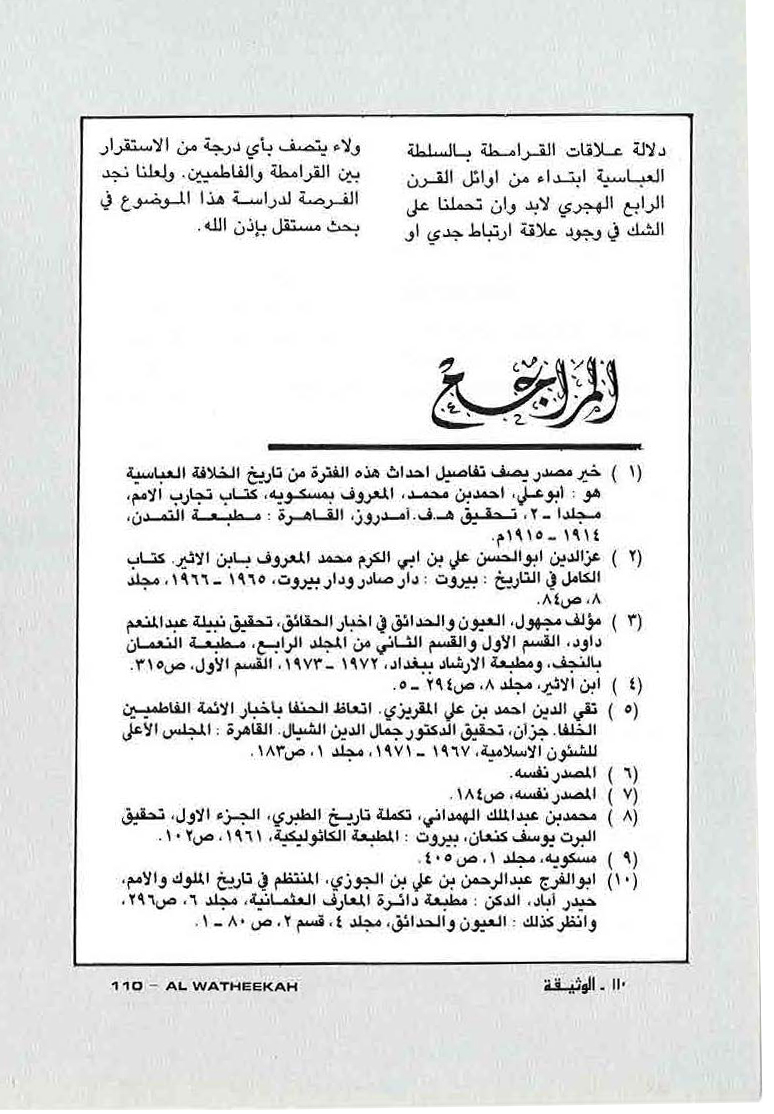 دلالة علاقات القرامطة بالسلطة
العباسية ابتداء من اوائل القرن
الرابع الهجري لابد وان تحملنا على
الشك في وجود علاقة ارتباط جدي او
ولاء يتصف بأي درجة من الاستقرار
بين القرامطة والفاطميين. ولعلنا نجد
الفرصة لدراسة هذا الموضوع في
بحث مستقل بإذن الله.
المراجع
(١) خير مصدر يصف تفاصيل احداث هذه الفترة من تاريخ الخلافة العباسية
هو : ابوعلي، احمدبن محمد، المعروف بمسكويه، كتاب تجارب الامم،
مجلدا - ٢، تحقيق هـ.ف.آمدروز، القاهرة : مطبعة التمدن،
١٩١٤ - ١٩١٥م.
(٢) عزالدين ابوالحسن علي بن ابي الكرم محمد المعروف بابن الاثير. كتاب
الكامل في التاريخ : بيروت : دار صادر ودار بيروت، ١٩٦٥ - ١٩٦٦، مجلد
٨، ص٨٤.
(٣) مؤلف مجهول، العيون والحدائق في اخبار الحقائق، تحقيق نبيلة عبدالمنعم
داود، القسم الأول والقسم الثاني من المجلد الرابع، مطبعة النعمان
بالنجف، ومطبعة الارشاد ببغداد، ١٩٧٢ - ١٩٧٣، القسم الأول، ص٣١٥.
(٤) ابن الاثير، مجلد ٨، ص٢٩٤ - ٥.
(٥) تقي الدين احمد بن علي المقريزي. اتعاظ الحنفا بأخبار الائمة الفاطميين
الخلفا. جزآن، تحقيق الدكتور جمال الدين الشيال. القاهرة : المجلس الأعلى
للشئون الاسلامية، ١٩٦٧ - ١٩٧١، مجلد ١، ص١٨٣.
(٦) المصدر نفسه.
(٧) المصدر نفسه، ص١٨٤.
(٨) محمدبن عبدالملك الهمداني، تكملة تاريخ الطبري، الجزء الاول، تحقيق
البرت يوسف كنعان، بيروت : المطبعة الكاثوليكية، ١٩٦١، ص١٠٢.
(٩) مسكويه، مجلد ١، ص٤٠٥.
(١٠) ابوالفرج عبدالرحمن بن علي بن الجوزي، المنتظم في تاريخ الملوك والأمم،
حيدر آباد، الدكن : مطبعة دائرة المعارف العثمانية، مجلد ٦، ص٢٩٦،
وانظر كذلك : العيون والحدائق، مجلد ٤، قسم ٢، ص ٨٠ - ١.
110 - AL WATHEEKAH
١١٠ - الوثيقة